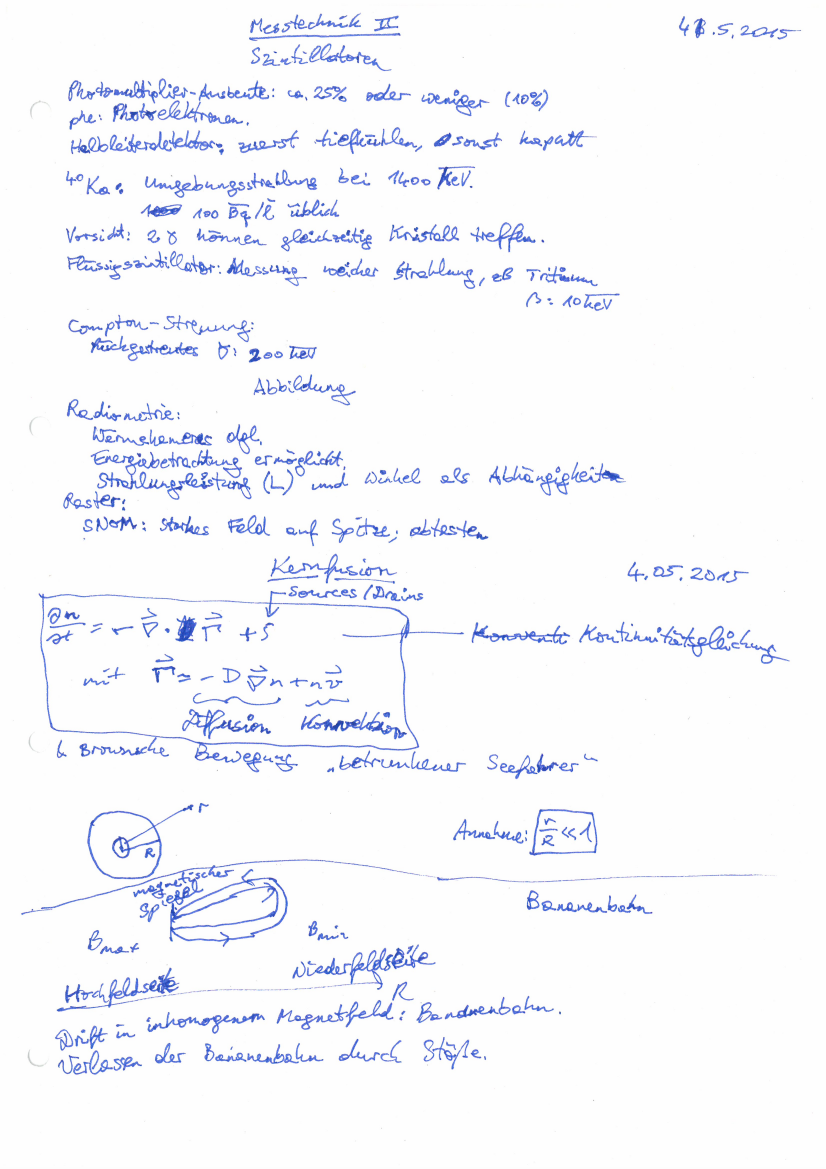 Messtechnik II
4.5.2015
Szintillatoren
Photomultiplier-Ausbeute: ca. 25% oder weniger (10%)
phe: Photoelektronen.
Halbleiterdetektor: zuerst tiefkühlen, sonst kaputt
⁴⁰Ka: Umgebungsstrahlung bei 1400 keV.
100 Bq/l üblich
Vorsicht: 2 γ können gleichzeitig Kristall treffen.
Flüssigszintillator: Messung weicher Strahlung, zB Tritium
β: 10 keV
Compton-Streuung:
Rückgestreutes γ: 200 keV
Abbildung
Radiometrie:
Wärmekameras dgl.
Energiebetrachtung ermöglicht.
Strahlungsleistung (L) und Winkel als Abhängigkeit
Raster:
SNOM: Starkes Feld auf Spitze; abtasten
Kernfusion
4.05.2015
Sources/Drains
∂n/∂t = - ∇⃗ · Γ⃗ + S
Kontinuitätsgleichung
mit Γ⃗ = - D ∇⃗n + n v⃗
Diffusion Konvektion
↳ Brownsche Bewegung „betrunkener Seefahrer“
r
R
Annahme: r/R << 1
magnetischer
Spiegel
Bananenbahn
Bmax
Bmin
Niederfeldseite
Hochfeldseite
R
Drift in inhomogenem Magnetfeld: Bananenbahn.
Verlassen der Bananenbahn durch Stöße.